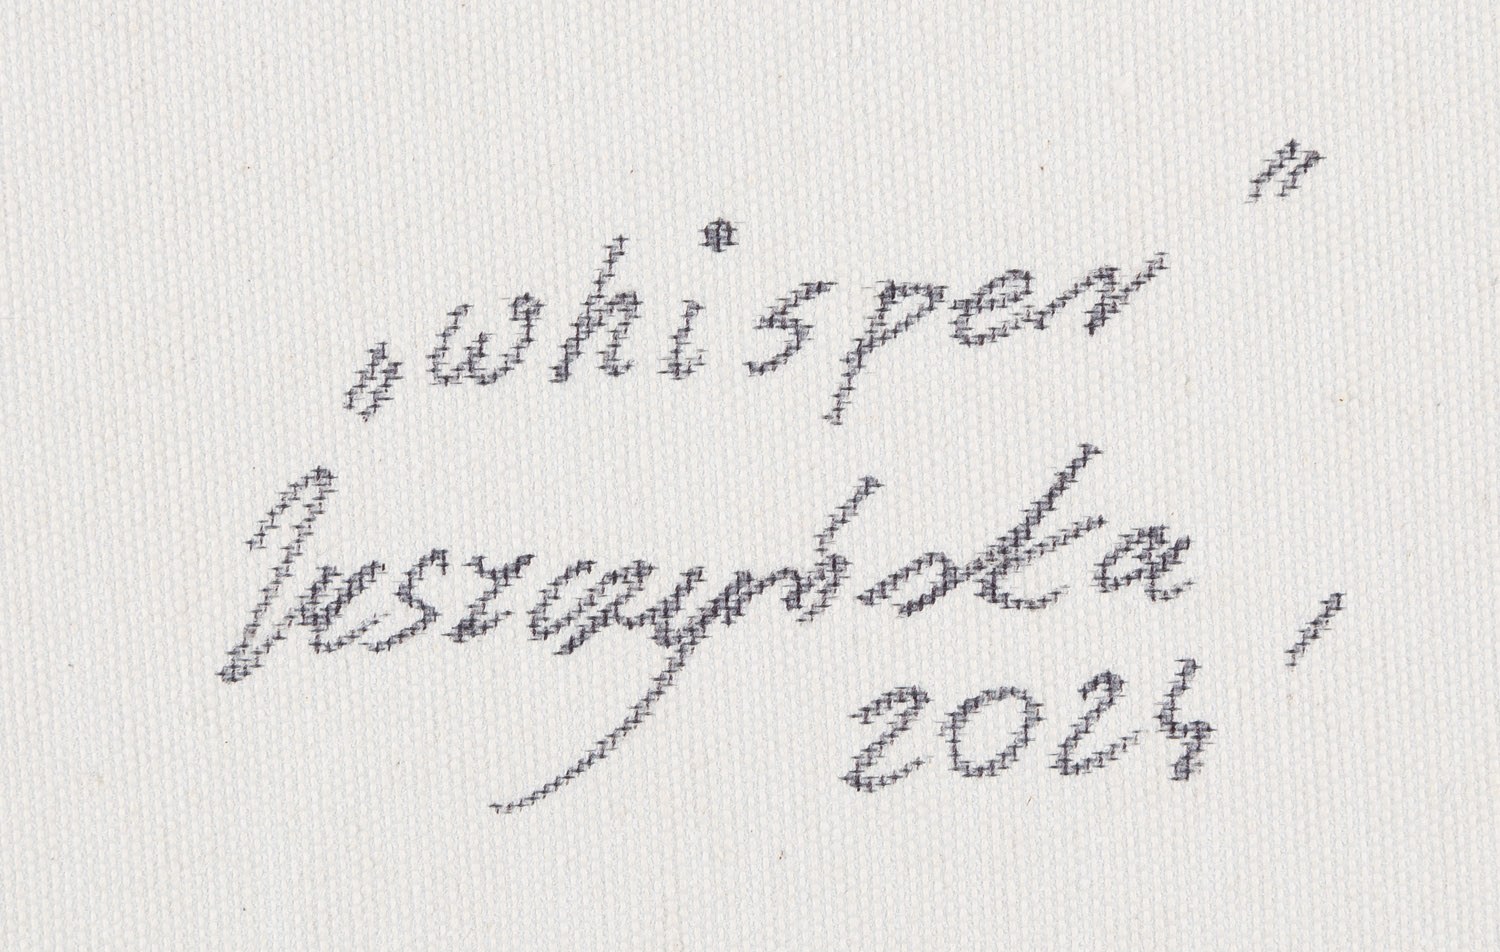 „whisper"
Leszczyńska,
2024